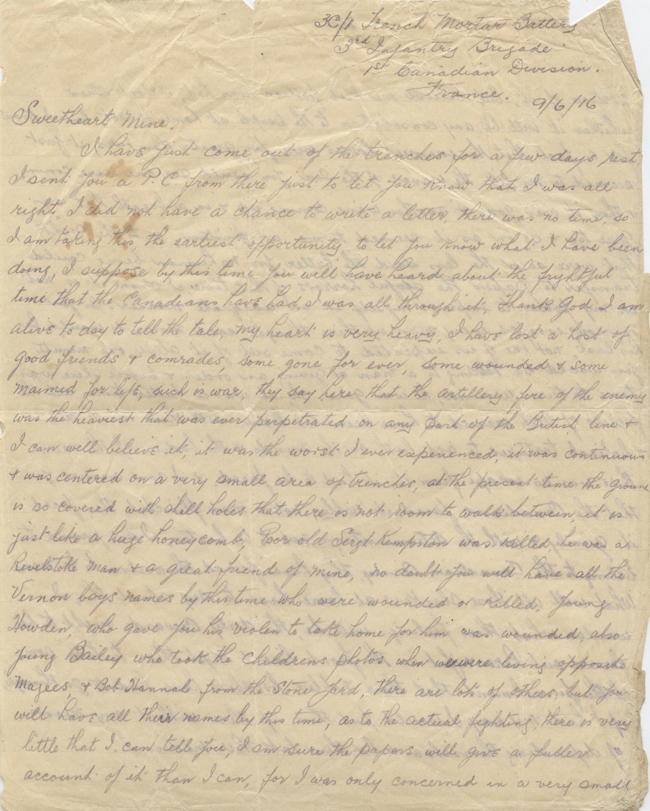 3C/1 Trench Mortar Battery
3rd Infantry Brigade.
1st Canadian Division.
France. 9/6/16
Sweetheart Mine.
I have just come out of the trenches for a few days rest
I sent you a P.C. from there just to let you know that I was all
right, I did not have a chance to write a letter, there was no time, so
I am taking this, the earliest opportunity to let you know what I have been
doing, I suppose by this time you will have heard about the frightful
time that the Canadians have had, I was all through it, thank God I am
alive to day to tell the tale, my heart is very heavy, I have lost a host of
good friends & comrades, some gone for ever, some wounded & some
maimed for life, such is war, they say here that the artillery fire of the enemy
was the heaviest that was ever perpetrated on any part of the British line &
I can well believe it, it was the worst I ever experienced, it was continuous
& was centered on a very small area of trenches, at the present time the ground
is so covered with shell holes that there is not room to walk between, it is
just like a huge honeycomb, Poor old Sergt Kempston was killed, he was a
Revelstoke man & a great friend of mine, no doubt you will have all the
Vernon boys names by this time who were wounded or killed, young
Howden, who gave you his violen to take home for him was wounded, also
young Bailey who took the childrens photos when we were living opposite
Magees & Bob Hannah from the Stone yard, there are lots of others, but you
will have all their names by this time, as to the actual fighting there is very
little that I can tell you, I am sure the papers will give a fuller
account of it than I can, for I was only concerned in a very small